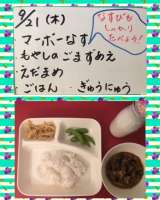 9/21(木)
なすびも
しっかり
たべよう!
マーボーなす
もやしのごまずあえ
えだまめ
ごはん ぎゅうにゅう